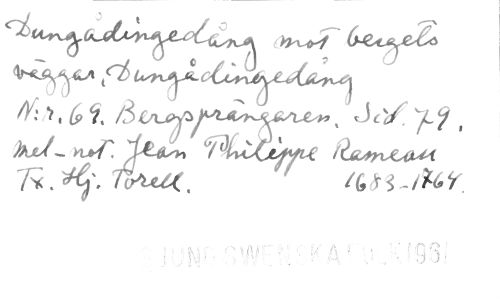 Dungådingedång mot bergets
väggar, Dungådingedång
N:r. 69. Bergsprängaren. Sid. 79.
mel-not. Jean Philippe Rameau
Tx. Hj. Torell. 1683-1764.
SJUNG SWENSKA FOLK 1961